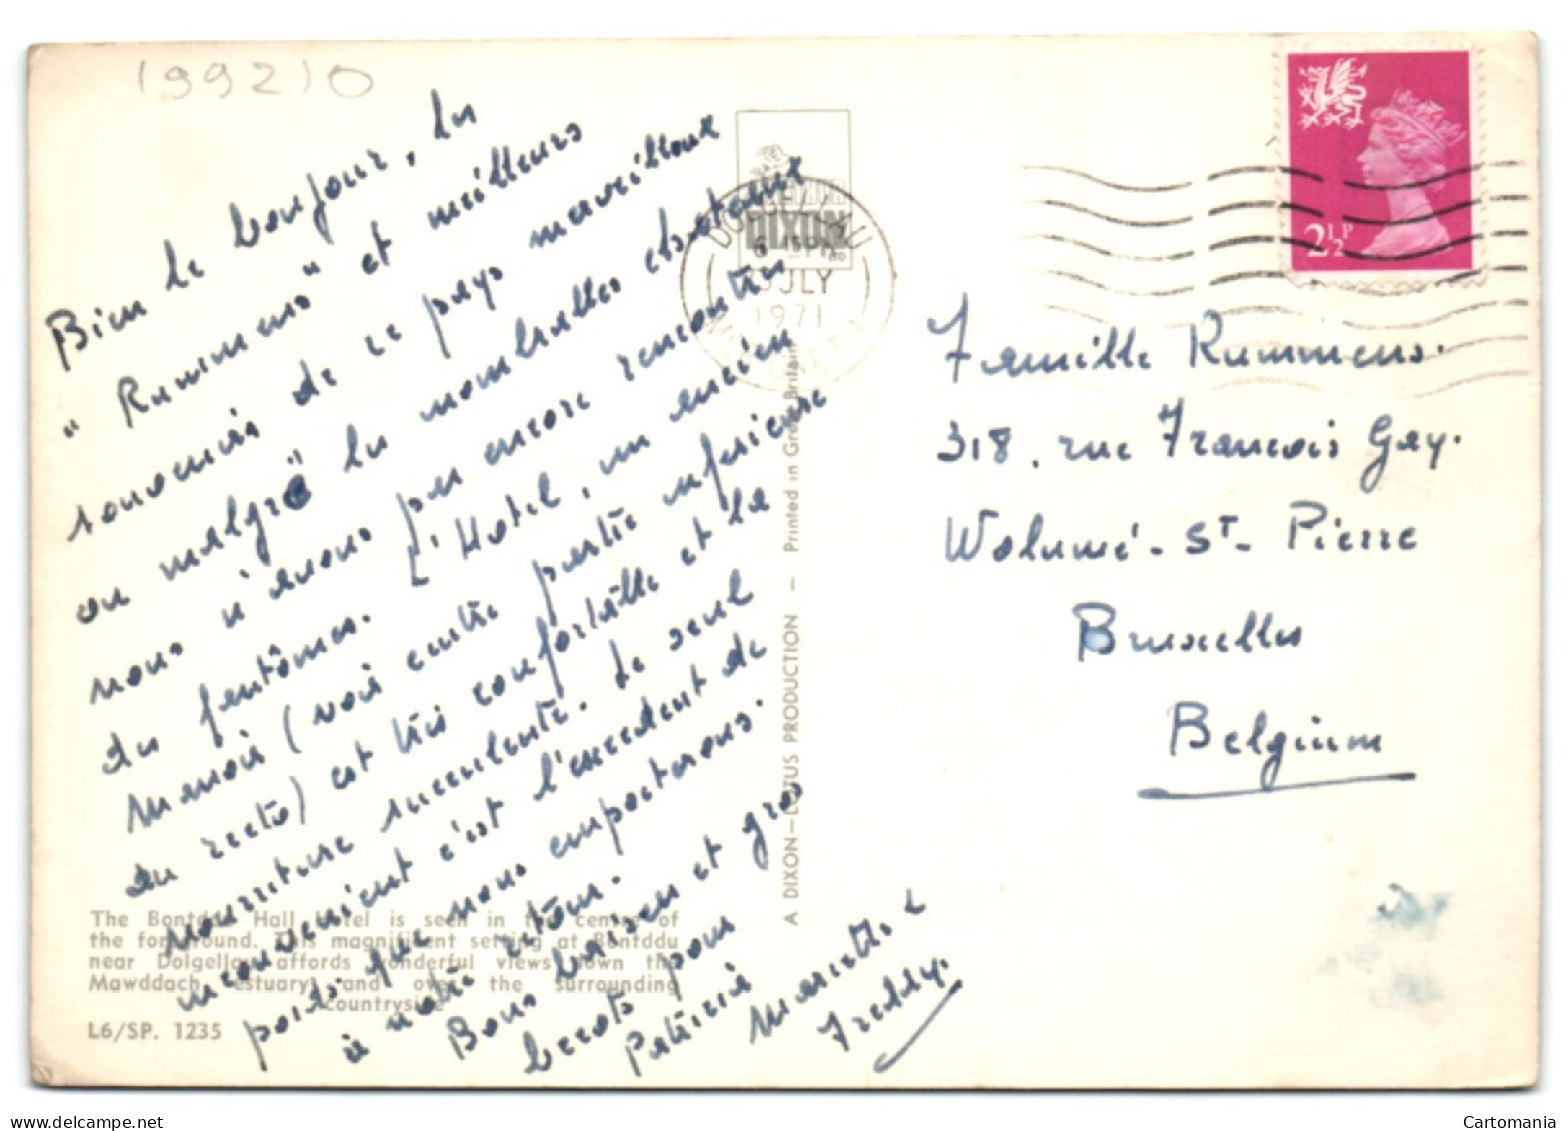 199210
Bien le bonjour, les
"Rummens" et meilleurs
souvenirs de ce pays merveilleux
ou malgré les nombreuses châteaux
nous n'avons pas encore rencontrés
des fantômes. L'Hotel, un ancien
Manoir (voir centre partie inférieure
du recto) est très confortable et la
nourriture succulente. Le seul
inconvenient c'est l'excedent de
poids que nous emporterons
à notre retour.
Bons baisers et gros
becots pour
Patricia
Mariette &
Freddy.
The Bontddu Hall Hotel is seen in the centre of
the foreground. This magnificent setting at Bontddu
near Dolgellau affords wonderful views down the
Mawddach estuary and over the surrounding
countryside
L6/SP. 1235
A DIXON-LOTUS PRODUCTION — Printed in Great Britain
DIXON
JLY
1971
2½P
Famille Rummens.
318, rue Francois Gay.
Wolumé-St-Pierre
Bruxelles
Belgium
Cartomania